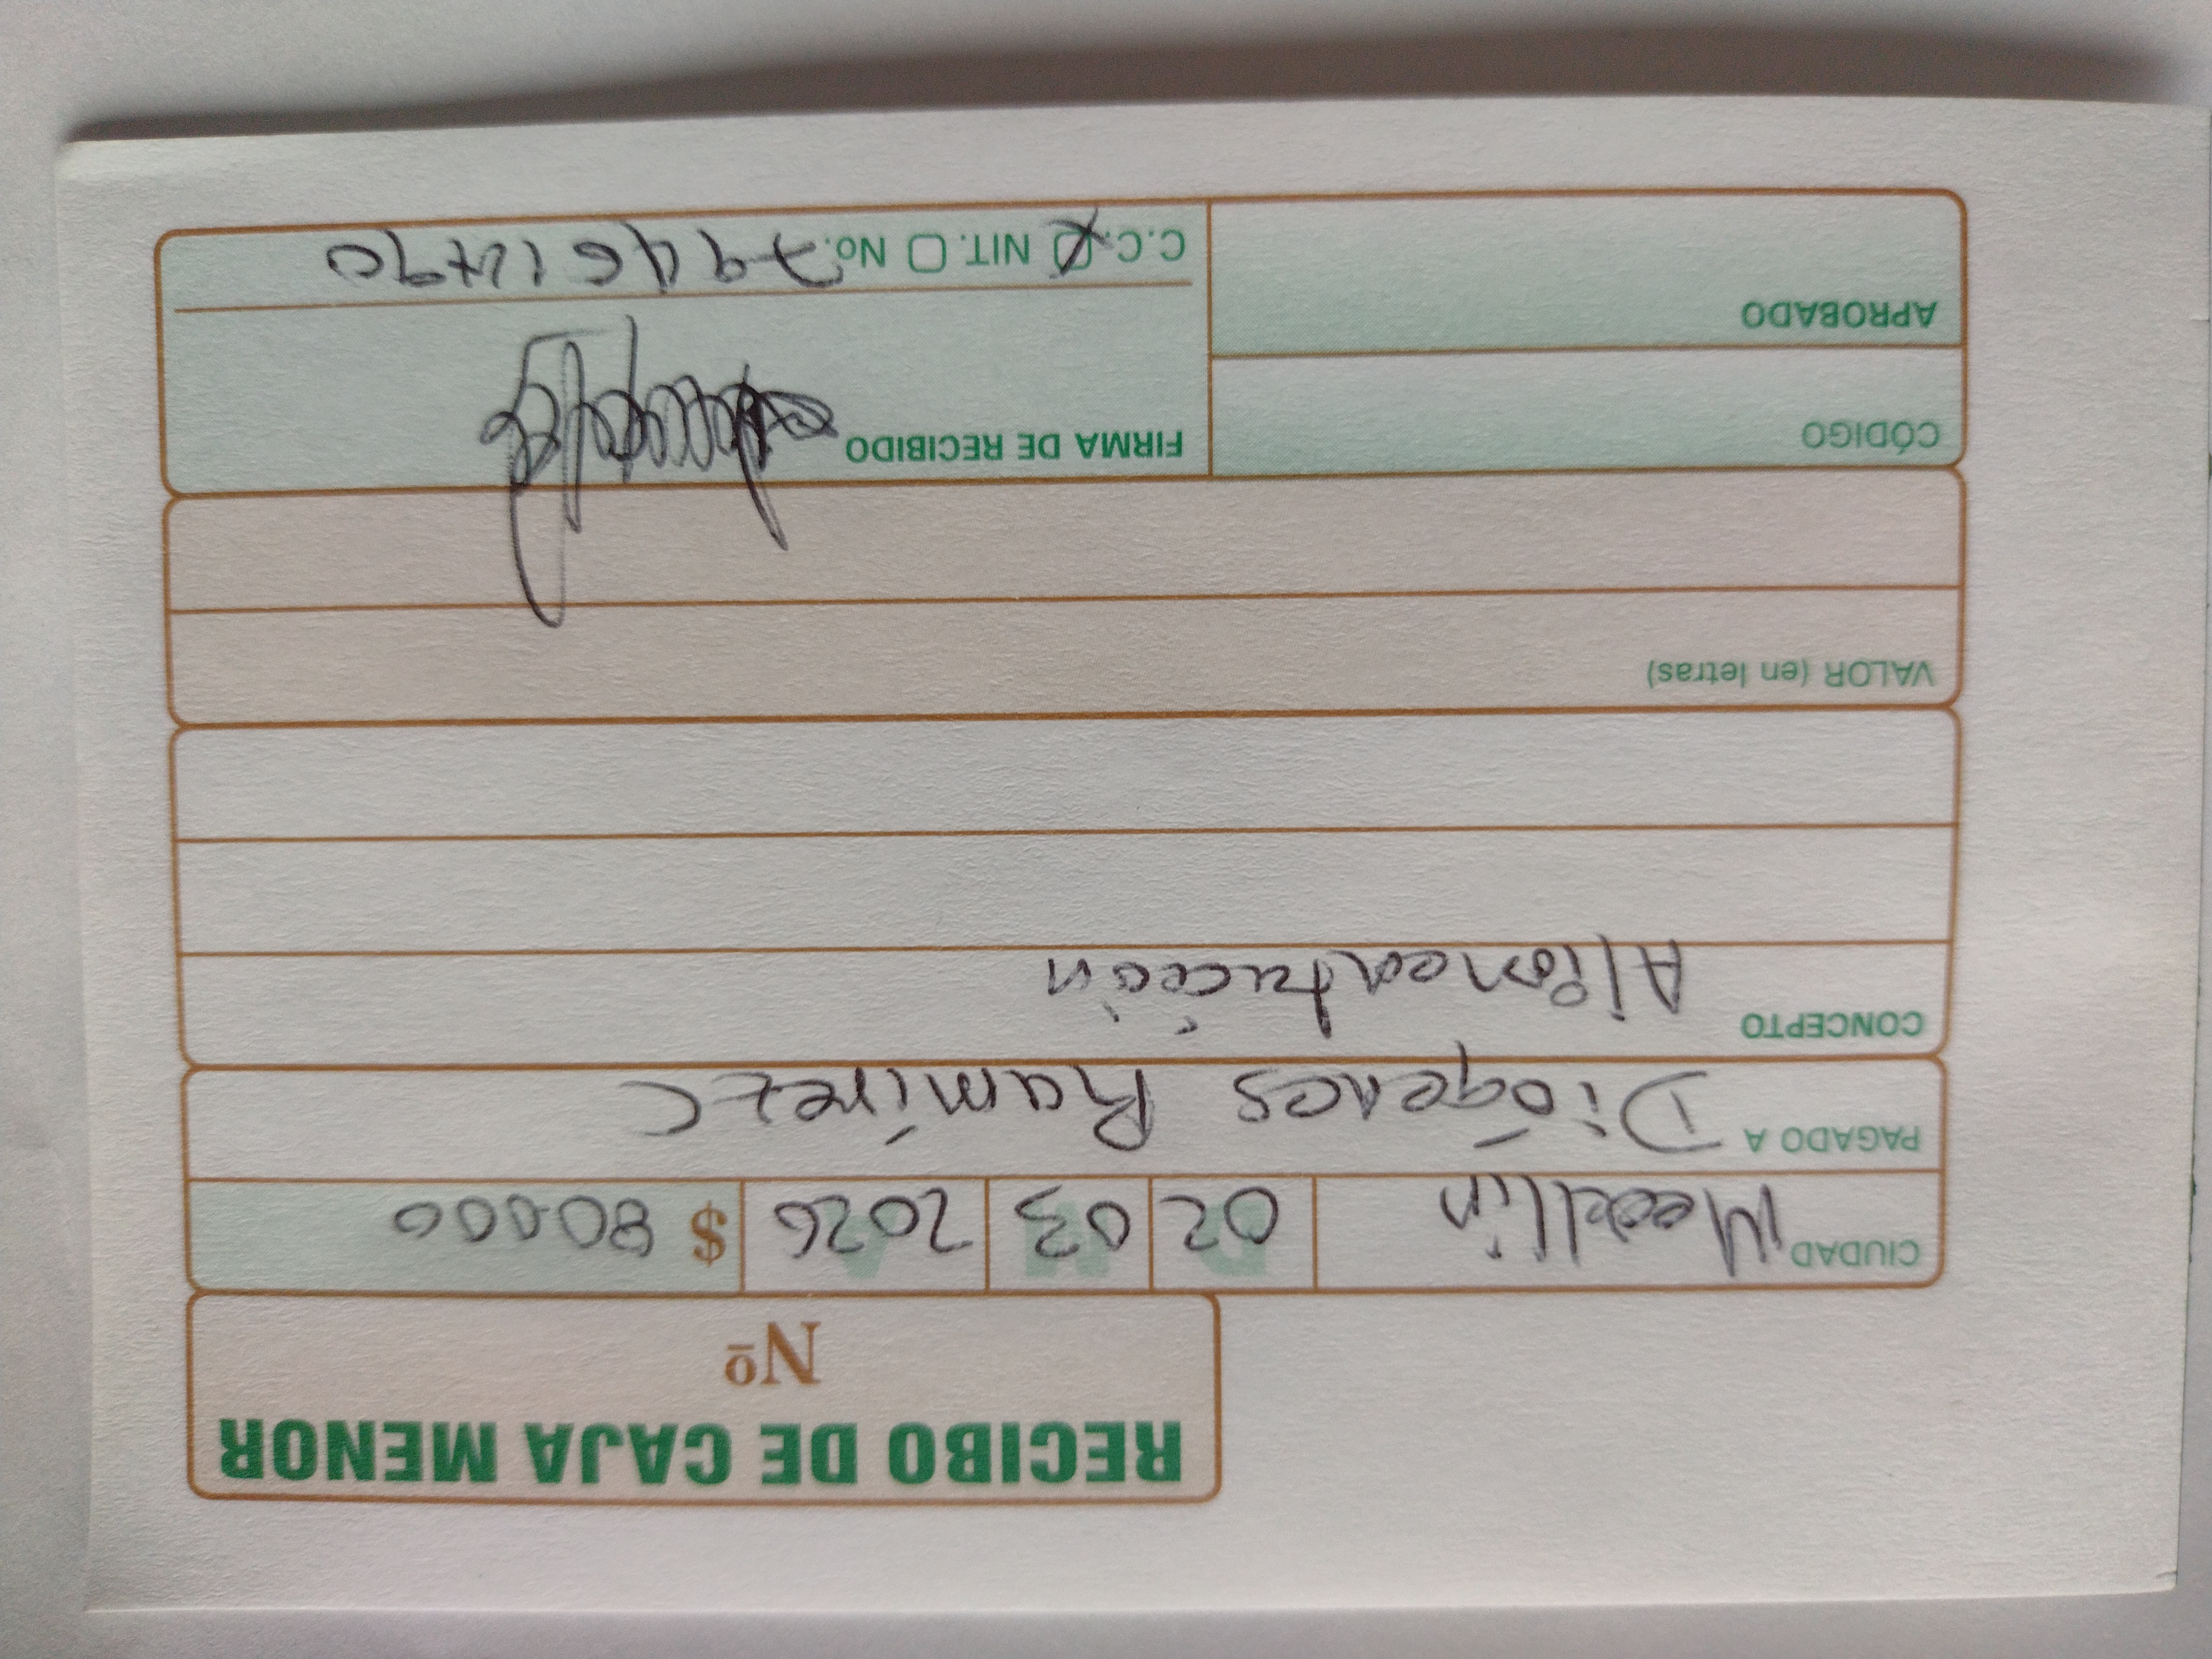 RECIBO DE CAJA MENOR
Nº
CIUDAD Medellín D 02 M 03 A 2026 $ 80.000
PAGADO A Diógenes Ramírez C
CONCEPTO Alimentación
VALOR (en letras)
CÓDIGO
FIRMA DE RECIBIDO
APROBADO
C.C. X NIT. No.